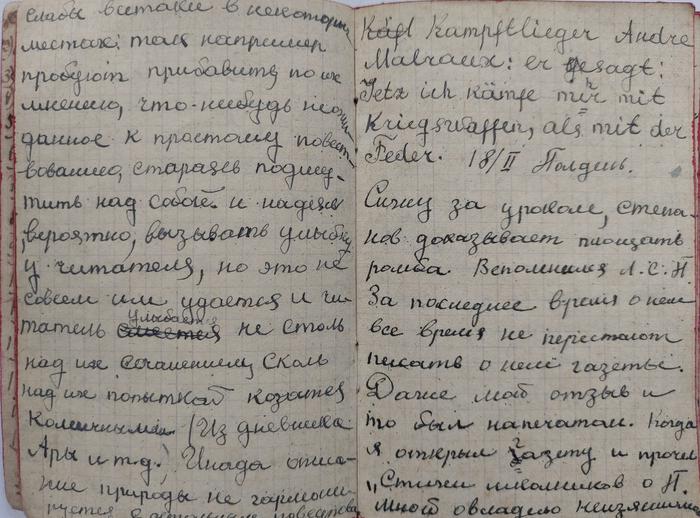 слабы всетаки в некоторых
местах: так например
пробуют прибавить по их
мнению, что-нибудь неожи-
данное к простому повест-
вованию, стараясь подшу-
тить над собой и надеясь
вероятно, вызывать улыбку
у читателя, но это не
совсем им удается и чи-
татель улыбается не столь
над их сочинением, сколь
над их попыткой казатся
комичными (Из дневника
Ары и т.д.) Иногда описа-
ние природы не гармони-
руется с остальным повествова
Kampfflieger Andre
Malraux: er gesagt:
Jetz ich kämpfe mir mit
Kriegswaffen, als mit der
Feder. 18/II Полдень.
Сижу за уроком, Степа-
нов доказывает площать
ромба. Вспомнился А.С.П.
За последнее время о нем
все время не перестают
писать о нем газеты.
Даже мой отзыв и
то был напечатан. Когда
я открыл газету и прочел
„Стихи школьников о П.
мной овладело неизяснимо